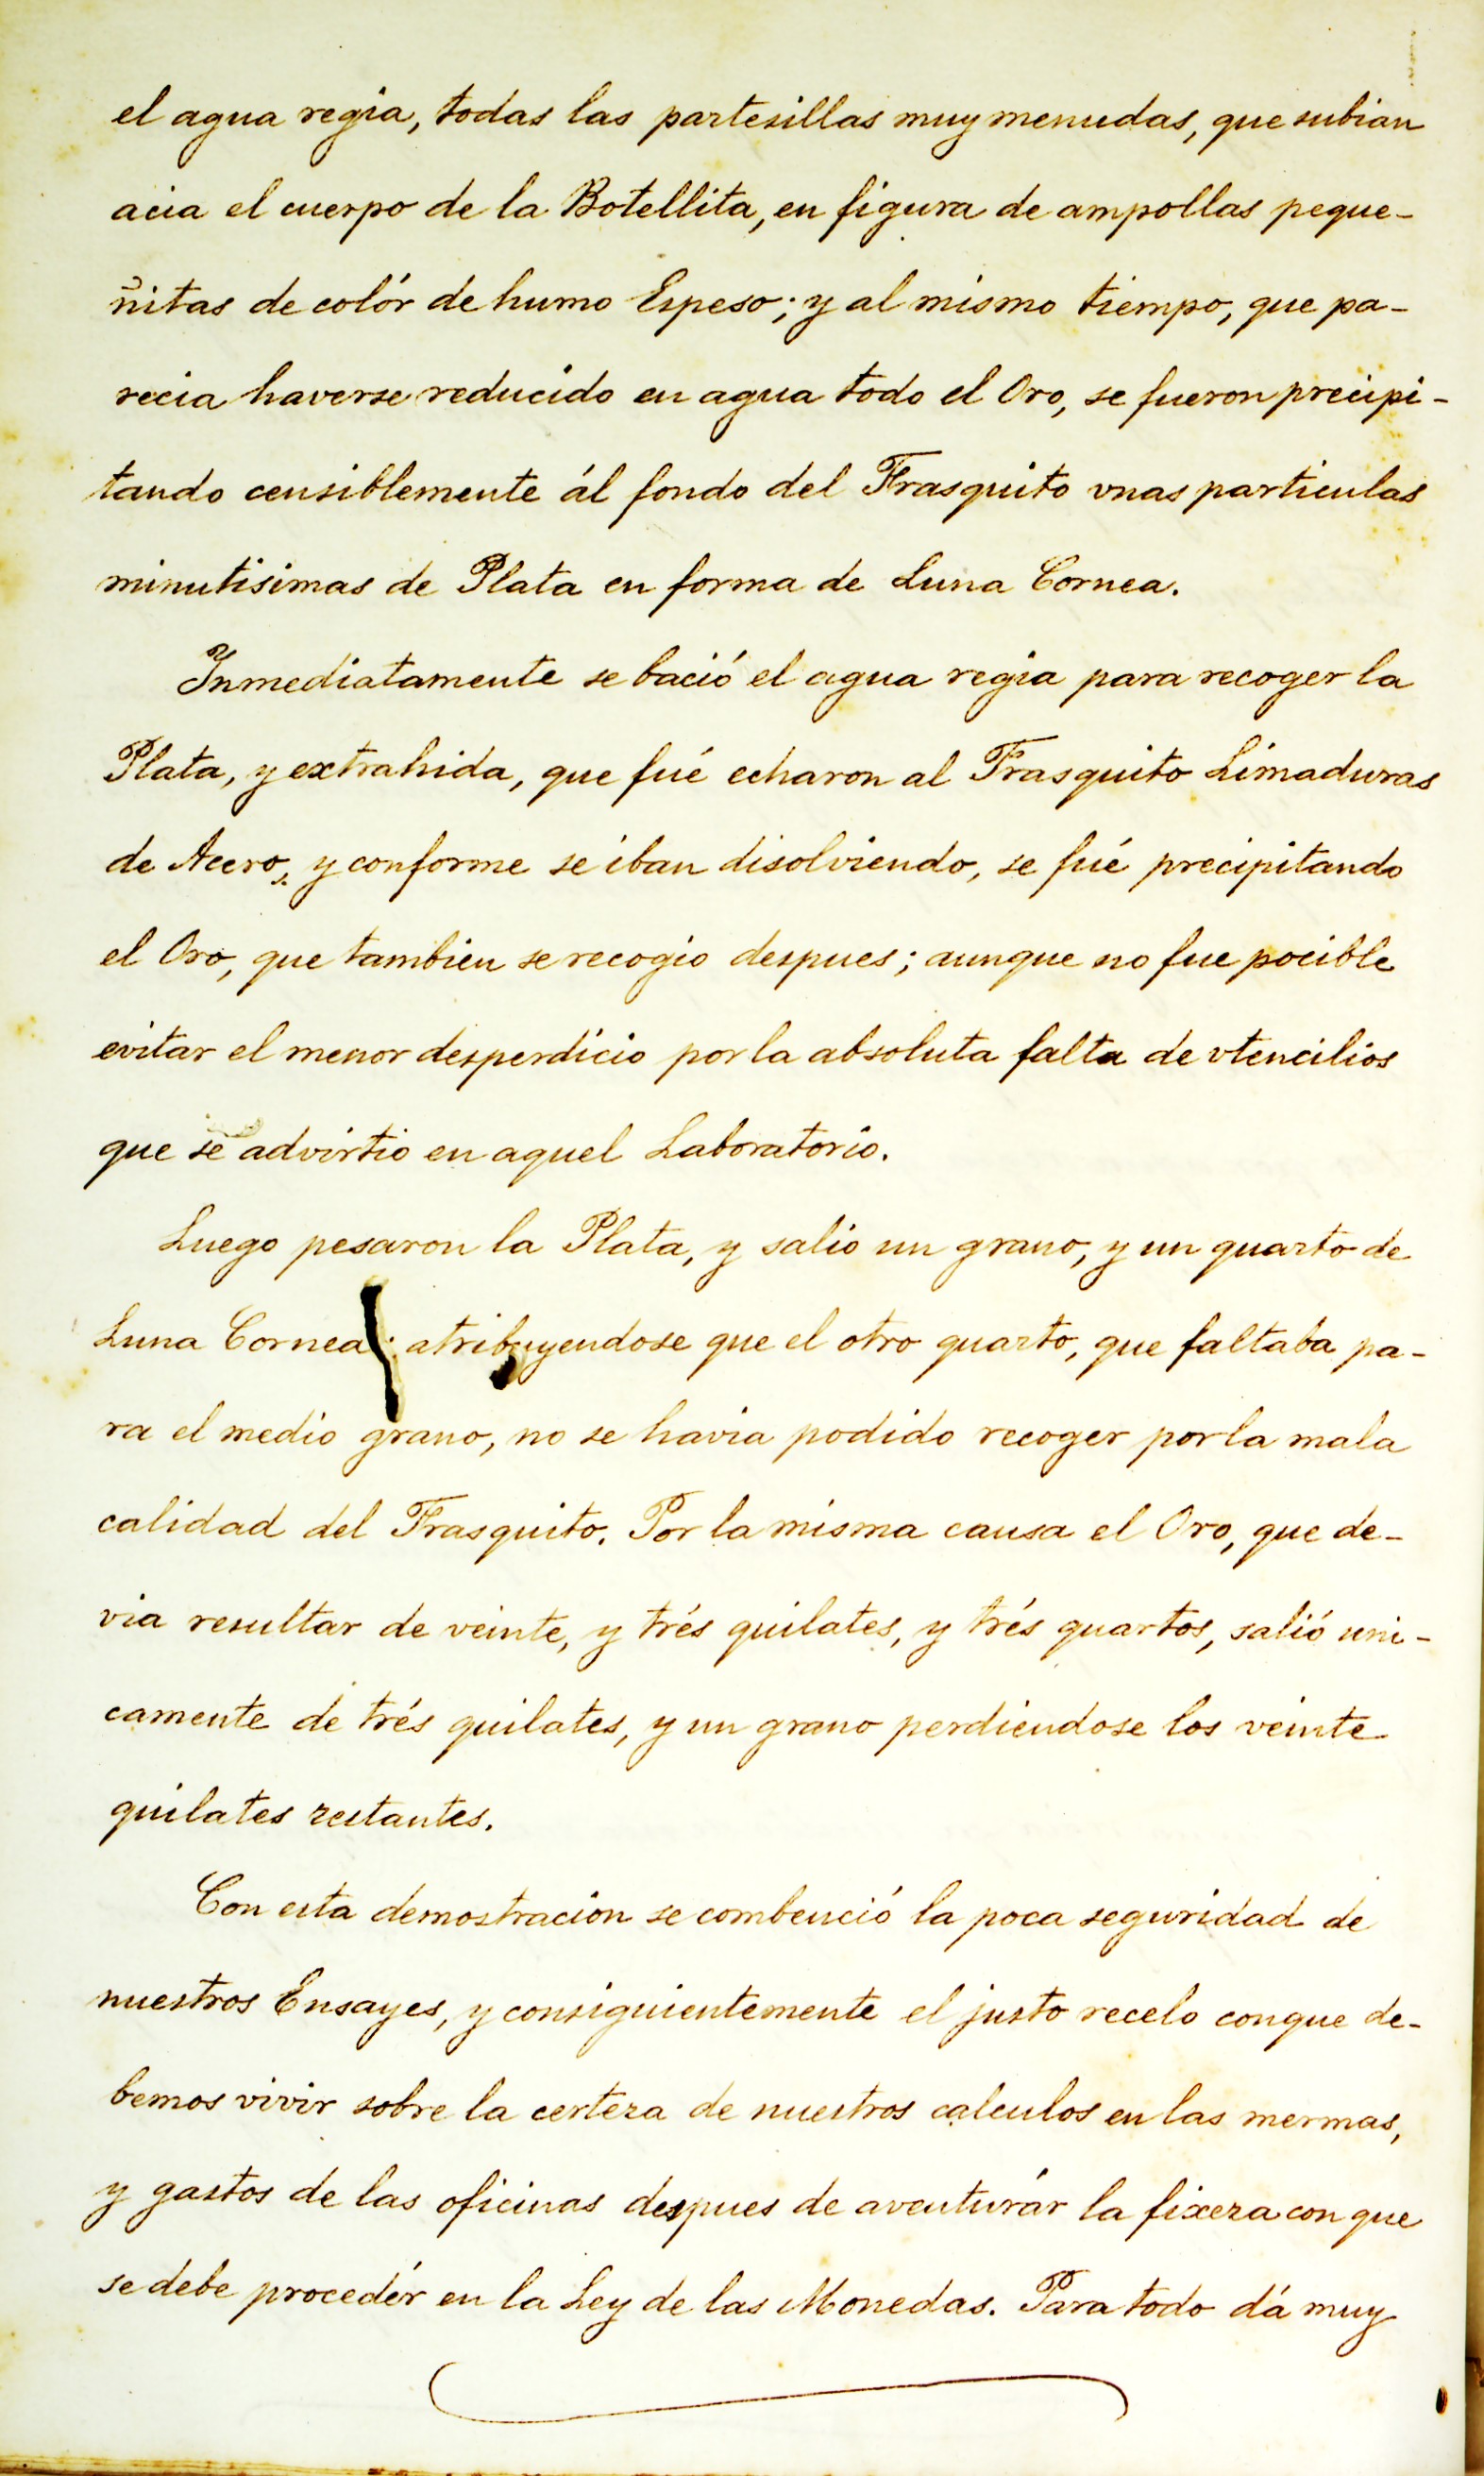 el agua regia, todas las partesillas muy menudas, que subian
acia el cuerpo de la Botellita, en figura de ampollas peque-
ñitas de colór de humo Espeso; y al mismo tiempo, que pa-
recia haverse reducido en agua todo el Oro, se fueron precipi-
tando censiblemente ál fondo del Frasquito vnas particulas
minutisimas de Plata en forma de Luna Cornea.
Inmediatamente se bació el agua regia para recoger la
Plata, y extrahida, que fué echaron al Frasquito Limaduras
de Acero, y conforme se iban disolviendo, se fué precipitando
el Oro, que tambien se recogio despues; aunque no fue pocible
evitar el menor desperdicio por la absoluta falta de vtencilios
que se advirtio en aquel Laboratorio.
Luego pesaron la Plata, y salio un grano, y un quarto de
Luna Cornea; atribuyendose que el otro quarto, que faltaba pa-
ra el medio grano, no se havia podido recoger por la mala
calidad del Frasquito. Por la misma causa el Oro, que de-
via resultar de veinte, y trés quilates, y trés quartos, salió uni-
camente de trés quilates, y un grano perdiendose los veinte
quilates restantes.
Con esta demostracion se combenció la poca seguridad de
nuestros Ensayes, y consiguientemente el justo recelo conque de-
bemos vivir sobre la certeza de nuestros calculos en las mermas,
y gastos de las oficinas despues de aventurár la fixeza con que
se debe procedér en la Ley de las Monedas. Para todo dá muy